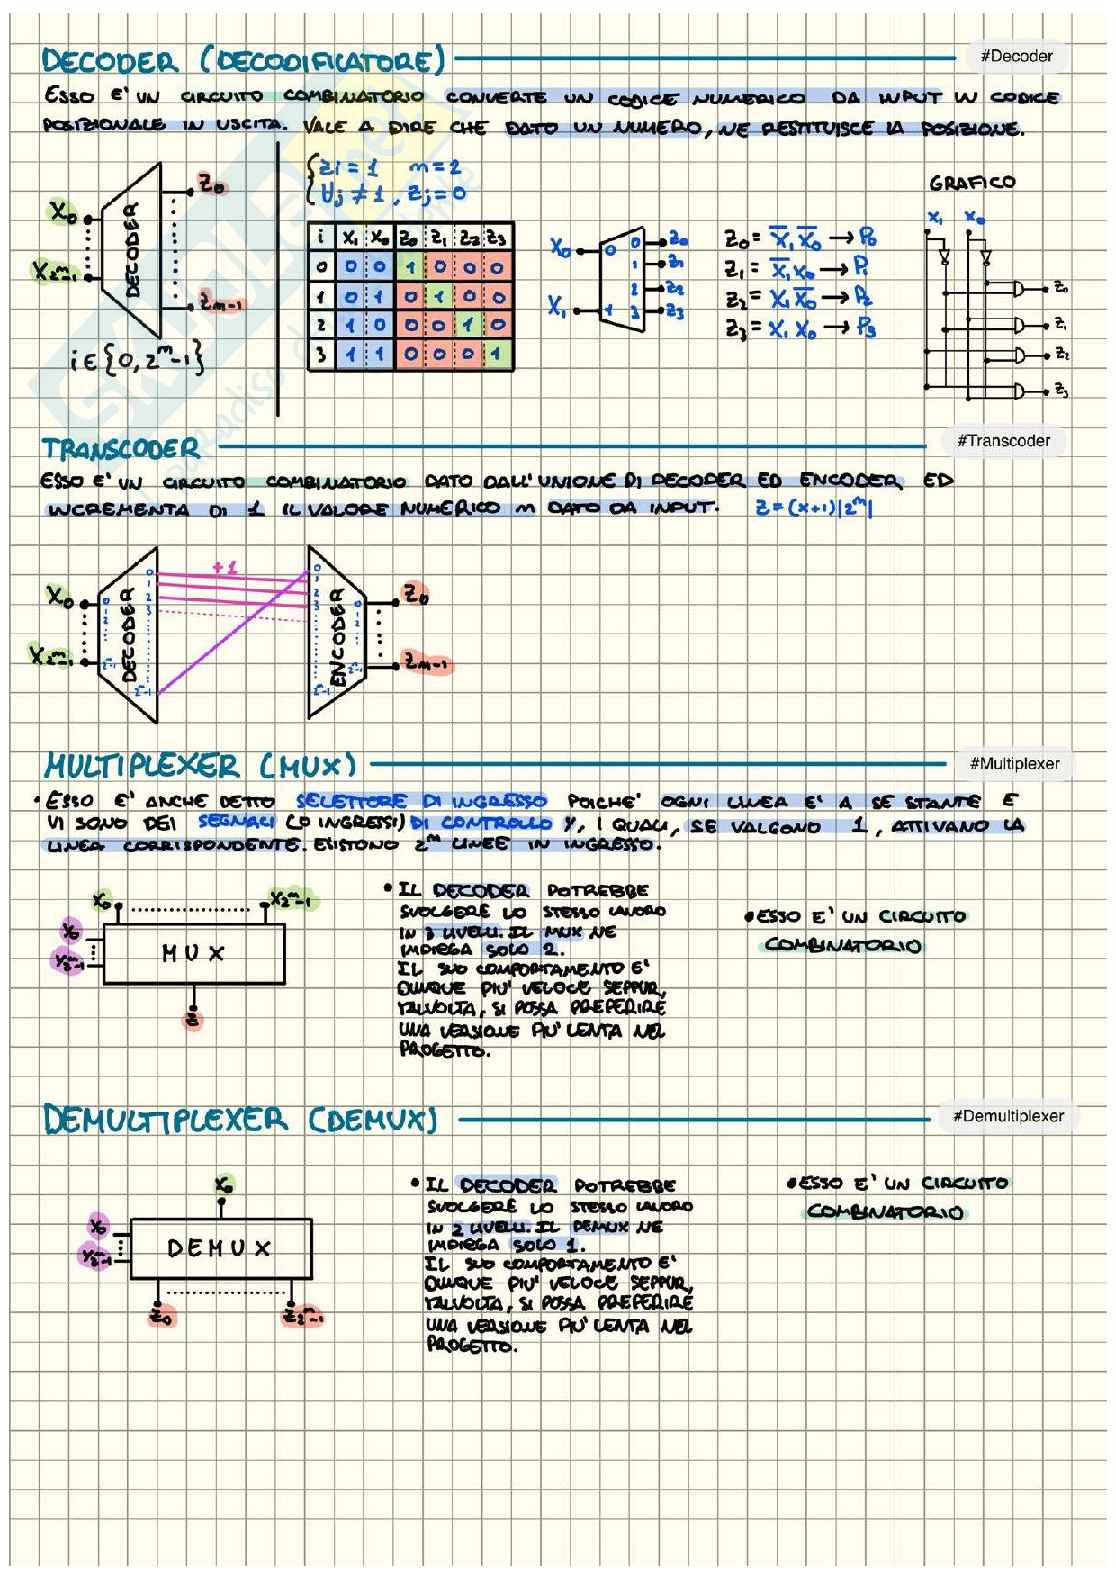 DECODER (DECODIFICATORE)
#Decoder
ESSO E' UN CIRCUITO COMBINATORIO CONVERTE UN CODICE NUMERICO DA INPUT IN CODICE
POSIZIONALE IN USCITA. VALE A DIRE CHE DATO UN NUMERO, NE RESTITUISCE LA POSIZIONE.
X₀
X₂ᵐ₋₁
DECODER
Z₀
Zₘ₋₁
i ∈ {0, 2ᵐ-1}
Zi = 1 m = 2
∀j ≠ 1, Zj = 0
i X₁ X₀ Z₀ Z₁ Z₂ Z₃
0 0 0 1 0 0 0
1 0 1 0 1 0 0
2 1 0 0 0 1 0
3 1 1 0 0 0 1
X₀ 0 0 Z₀
1 Z₁
2 Z₂
X₁ 1 3 Z₃
Z₀ = X̅₁ X̅₀ → P₀
Z₁ = X̅₁ X₀ → P₁
Z₂ = X₁ X̅₀ → P₂
Z₃ = X₁ X₀ → P₃
GRAFICO
X₁ X₀
Z₀
Z₁
Z₂
Z₃
TRANSCODER
#Transcoder
ESSO E' UN CIRCUITO COMBINATORIO DATO DALL'UNIONE DI DECODER ED ENCODER ED
INCREMENTA DI 1 IL VALORE NUMERICO m DATO DA INPUT. Z = (x+1)|2ᵐ|
+1
X₀
X₂ᵐ₋₁
DECODER
0
1
2
3
2ᵐ-1
ENCODER
Z₀
Zₘ₋₁
MULTIPLEXER (MUX)
#Multiplexer
• ESSO E' ANCHE DETTO SELETTORE DI INGRESSO POICHE' OGNI LINEA E' A SE STANTE E
VI SONO DEI SEGNALI (O INGRESSI) DI CONTROLLO Y, I QUALI, SE VALGONO 1, ATTIVANO LA
LINEA CORRISPONDENTE. ESISTONO 2ᵐ LINEE IN INGRESSO.
X₀ X₂ᵐ₋₁
Y₀
Y₂ᵐ₋₁
MUX
Z
• IL DECODER POTREBBE
SVOLGERE LO STESSO LAVORO
IN 3 LIVELLI. IL MUX NE
IMPIEGA SOLO 2.
IL SUO COMPORTAMENTO E'
DUNQUE PIU' VELOCE SEPPUR,
TALVOLTA, SI POSSA PREFERIRE
UNA VERSIONE PIU' LENTA NEL
PROGETTO.
• ESSO E' UN CIRCUITO
COMBINATORIO
DEMULTIPLEXER (DEMUX)
#Demultiplexer
X₀
Y₀
Y₂ᵐ₋₁
DEMUX
Z₀ Z₂ᵐ₋₁
• IL DECODER POTREBBE
SVOLGERE LO STESSO LAVORO
IN 2 LIVELLI. IL DEMUX NE
IMPIEGA SOLO 1.
IL SUO COMPORTAMENTO E'
DUNQUE PIU' VELOCE SEPPUR,
TALVOLTA, SI POSSA PREFERIRE
UNA VERSIONE PIU' LENTA NEL
PROGETTO.
• ESSO E' UN CIRCUITO
COMBINATORIO